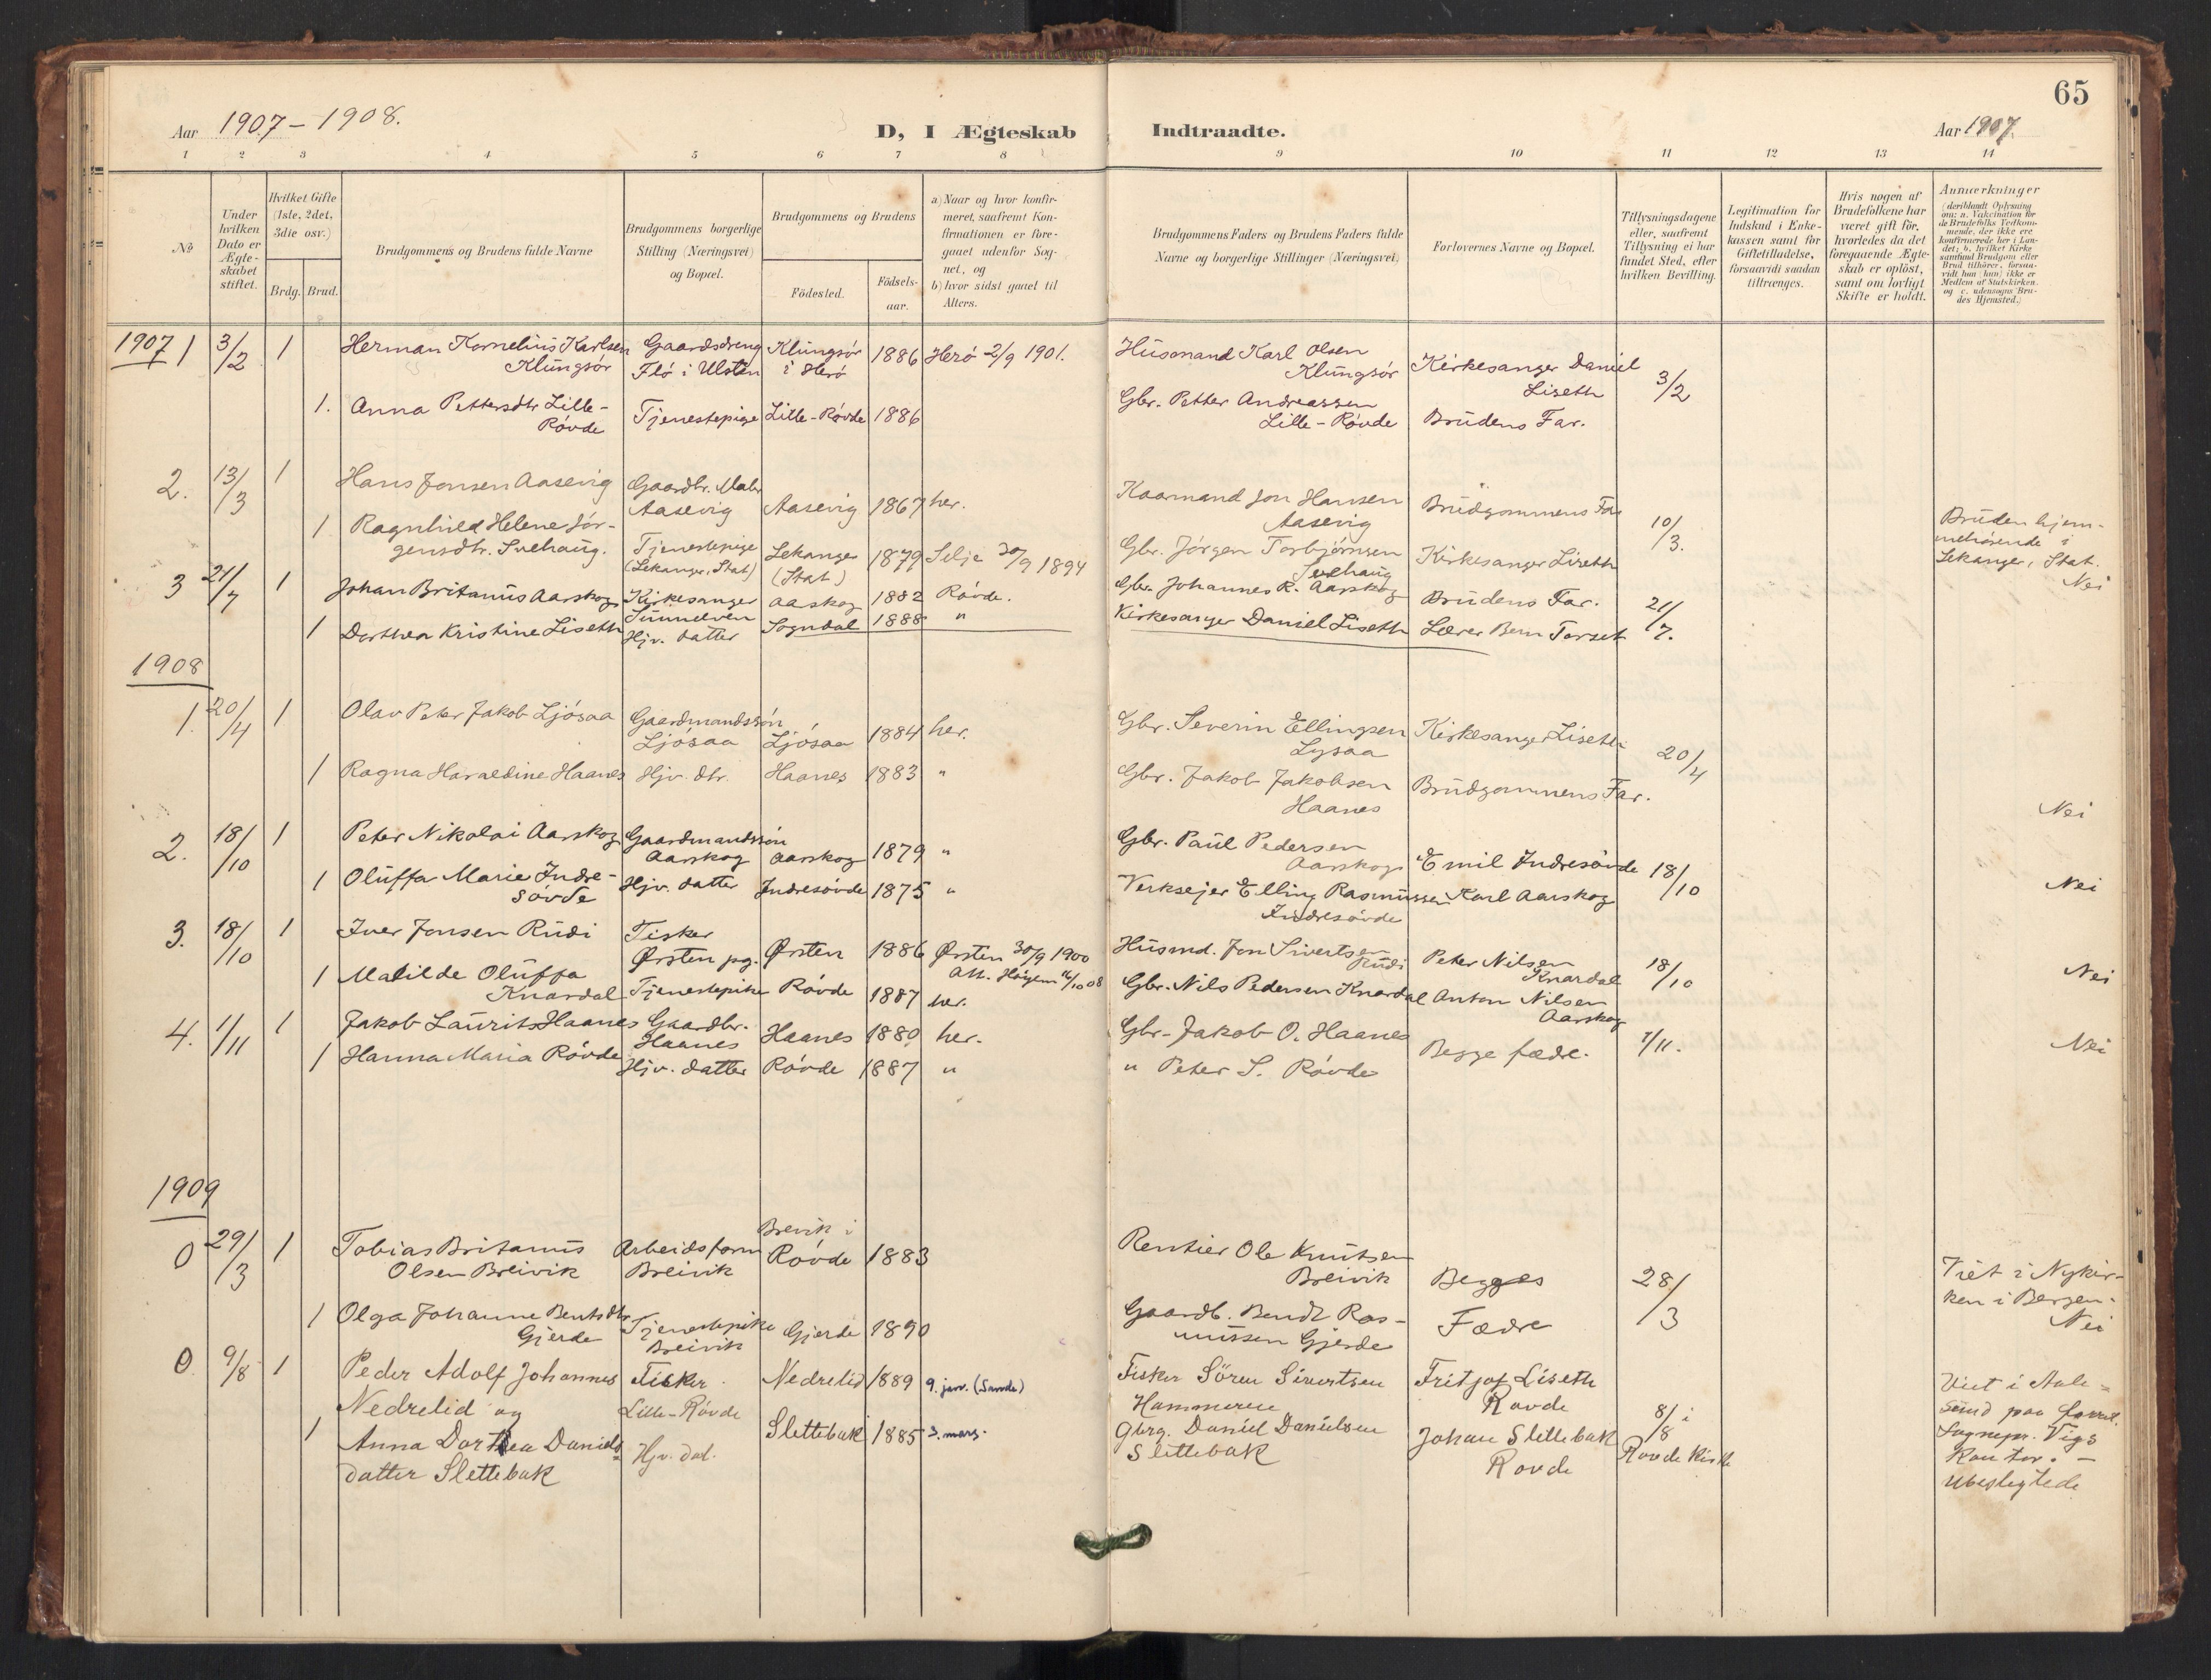 65
Aar 1907 – 1908.
D, I Ægteskab
Indtraadte.
Aar 1907.
1 2 3 4 5 6 7 8 9 10 11 12 13 14
No
Under hvilken Dato er Ægte-skabet stiftet.
Hvilket Gifte (1ste, 2det, 3die osv.)
Brdg. Brud.
Brudgommens og Brudens fulde Navne
Brudgommens borgerlige Stilling (Næringsvei) og Bopæl.
Brudgommens og Brudens
Födested.
Födsels-aar.
a) Naar og hvor konfir-meret, saafremt Kon-firmationen er fore-gaaet udenfor Sog-net, og
b) hvor sidst gaaet til Alters.
Brudgommens Faders og Brudens Faders fulde Navne og borgerlige Stillinger (Næringsvei)
Forlovernes Navne og Bopæl.
Tillysningsdagene eller, saafremt Tillysning ei har fundet Sted, efter hvilken Bevilling.
Legitimation for Indskud i Enke-kassen samt for Giftetilladelse, forsaavidt saadan tiltrænges.
Hvis nogen af Brudefolkene har været gift för, hvorledes da det foregaaende Ægte-skab er oplöst, samt om lovligt Skifte er holdt.
Anmærkninger
(deriblandt Oplysning om: a. Vakcination for de Brudefolks Vedkom-mende, der ikke ere konfirmerede her i Lan-det; b. hvilket Kirke samfund Brudgom eller Brud tilhörer, forsaa-vidt han (hun) ikke er Medlem af Statskirken, og c. udensogns Bru-des Hjemsted.)
1907 1 3/2 1 Herman Kornelius Karlsen Gaardsdreng Klungsör 1886 Herö 2/9 1901. Husmand Karl Olsen Kirkesanger Daniel 3/2
Klungsör Flö i Ulsten i Herö Klungsör Liseth
1. Anna Pettersdtr Lille- Tjenestepige Lille-Rövde 1886 Gbr. Petter Andreassen Brudens Far.
Rövde Lille-Rövde
2. 13/3 1 Hans Jonsen Aasevig Gaardbr. Maler Aasevig 1867 her. Kaarmand Jon Hansen Brudgommens Far 10/3.
Aasevig Aasevig
1 Ragnhild Helene Jör- Tjenestepige Lekanger 1879 Selje 30/9 1894 Gbr. Jörgen Torbjörnsen Kirkesanger Liseth Bruden hjem-
gensdtr. Svehaug. (Lekanger, Stat) (Stat) Svehaug mehörende i
Lekanger, Stat.
3 21/7 1 Johan Britanus Aarskog Kirkesanger Aarskog 1882 Rövde. Gbr. Johannes R. Aarskog Brudens Far. 21/7. Nei
Sunnelven
1 Dorthea Kristine Liseth Hjv. datter Sogndal 1888 " Kirkesanger Daniel Liseth Lærer Bern Torset
1908
1. 20/4 1 Olav Peter Jakob Ljösaa Gaardmandssön Ljösaa 1884 her. Gbr. Severin Ellingsen Kirkesanger Liseth 20/4
Ljösaa Lysaa
1 Ragna Haraldine Haanes Hjv. dtr. Haanes 1883 " Gbr. Jakob Jakobsen Brudgommens Far.
Haanes Nei
2. 18/10 1 Peter Nikolai Aarskog Gaardmandssön Aarskog 1879 " Gbr. Paul Pedersen Emil Indresövde 18/10
Aarskog Aarskog
1 Oluffa Marie Indre- Hjv. datter Indresövde 1875 " Verksejer Elling Rasmussen Karl Aarskog Nei
sövde Indresövde
3. 18/10 1 Iver Jonsen Rudi Fisker Ørsten 1886 Ørsten 30/9 1900 Husmd. Jon Sivertsen Peter Nilsen 18/10
Ørsten pg. Att. 16/10 08 Rudi Knardal Nei
1 Matilde Oluffa Tjenestepike Rövde 1887 her. Gbr. Nils Pedersen Knardal Anton Nilsen
Knardal Aarskog
4. 1/11 1 Jakob Laurits Haanes Gaardbr. Haanes 1880 her. Gbr. Jakob O. Haanes Begge fædre. 1/11. Nei
Haanes
1 Hanna Maria Rövde Hjv. datter Rövde 1887 " " Peter S. Rövde
1909
0 29/3 1 Tobias Britanus Arbeidsform Breivik i 1883 Rentier Ole Knutsen Begges 28/3
Olsen Breivik Breivik Rövde Breivik Viet i Nykir-
1 Olga Johanne Bentsdtr Tjenestepike Gjerde 1890 Gaardb. Bendt Ras- Fædre ken i Bergen.
Gjerde Breivik mussen Gjerde Nei
0. 9/8 1 Peder Adolf Johannes Fisker Nedrelid 1889 9. jan. (Sande) Fisker Sören Sivertsen Fritjof Liseth
Nedrelid og Lille-Rövde Hammeren Rovde 8/8 i
1 Anna Dorthea Daniels- Hjv. dat. Slettebak 1885 3. mars. Gbrg. Daniel Danielsen Johan Slettebak Rovde Kirke
datter Slettebak Slettebak Rovde
Viet i Aale-
sund paa
Sognepr. Vigs
Kontor. –
Ubeslegtede